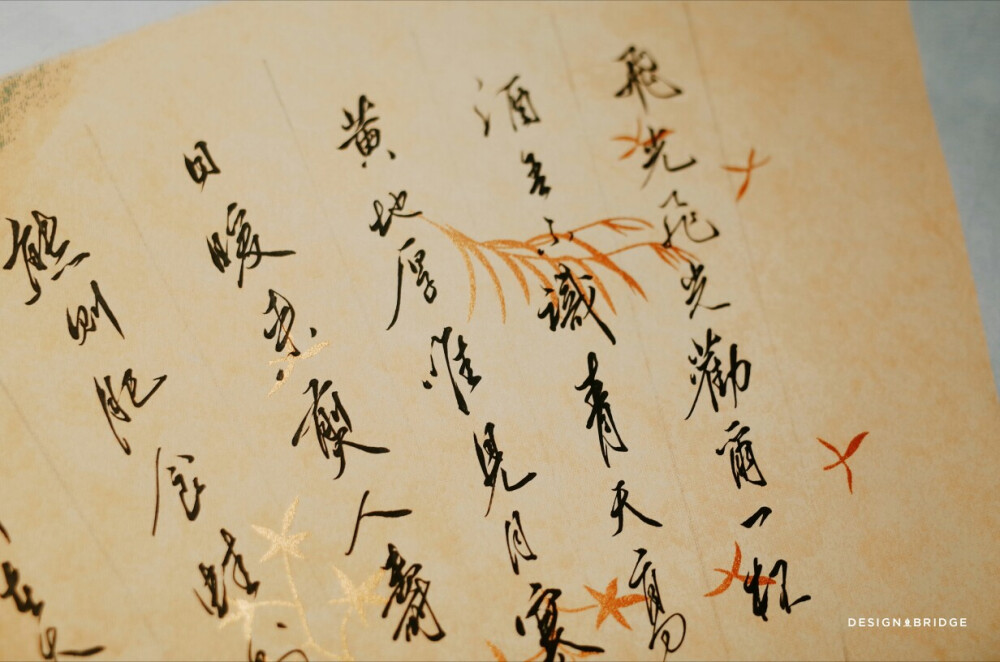 飛光飛光勸爾一杯
酒吾不識青天高
黄地厚唯見月寒
日暖來煎人壽
熊則肥食蛙
DESIGN BRIDGE